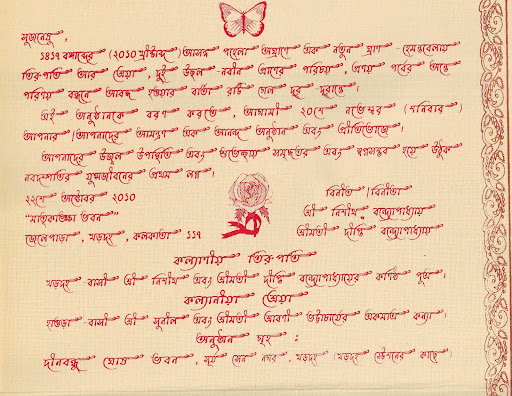 সুজনেষু,
১৪১৭ বঙ্গাব্দের (২০১০ খ্রীষ্টাব্দ) আসন্ন পহেলা অঘ্রাণে এক নতুন ঘ্রাণ - হেমন্তবেলায়
তিরুপতি আর শ্রেয়া, দুই উজ্বল নবীন প্রাণের পরিচয়, প্রণয় পর্বের অন্তে
পরিণয় বন্ধনে আবদ্ধ হওয়ার বার্তা রটি গেল দূর দূরান্তে।
এই অনুষ্ঠানকে বরণ করতে, আগামী ২০শে নভেম্বর (শনিবার)
আপনার / আপনাদের আমন্ত্রণ এক আনন্দ অনুষ্ঠান এবং প্রীতিভোজে।
আপনাদের উজ্বল উপস্থিতি এবং শুভেচ্ছায় সমৃদ্ধতর এবং স্বপ্নসম্ভব হয়ে উঠুক
নবদম্পতির যুগ্মজীবনের প্রথম লগ্ন।
২২শে অক্টোবর ২০১০
ভবন"
জেলেপাড়া, খড়দহ, কলকাতা ১১৭
বিনীত / বিনীতা
শ্রী নিশীথ বন্দ্যোপাধ্যায়
শ্রীমতী দীপ্তি বন্দ্যোপাধ্যায়
কল্যাণীয় তিরুপতি
খড়দহ বাসী শ্রী নিশীথ এবং শ্রীমতী দীপ্তি বন্দ্যোপাধ্যায়ের কনিষ্ঠ পুত্র।
কল্যাণীয়া শ্রেয়া
হাওড়া বাসী শ্রী সুনীল এবং শ্রীমতী শ্রাবণী ভট্টাচার্যের একমাত্র কন্যা।
অনুষ্ঠান গৃহ :
দীনবন্ধু ঘোষ ভবন, সূর্য সেন নগর, খড়দহ (খড়দহ স্টেশনের কাছে)